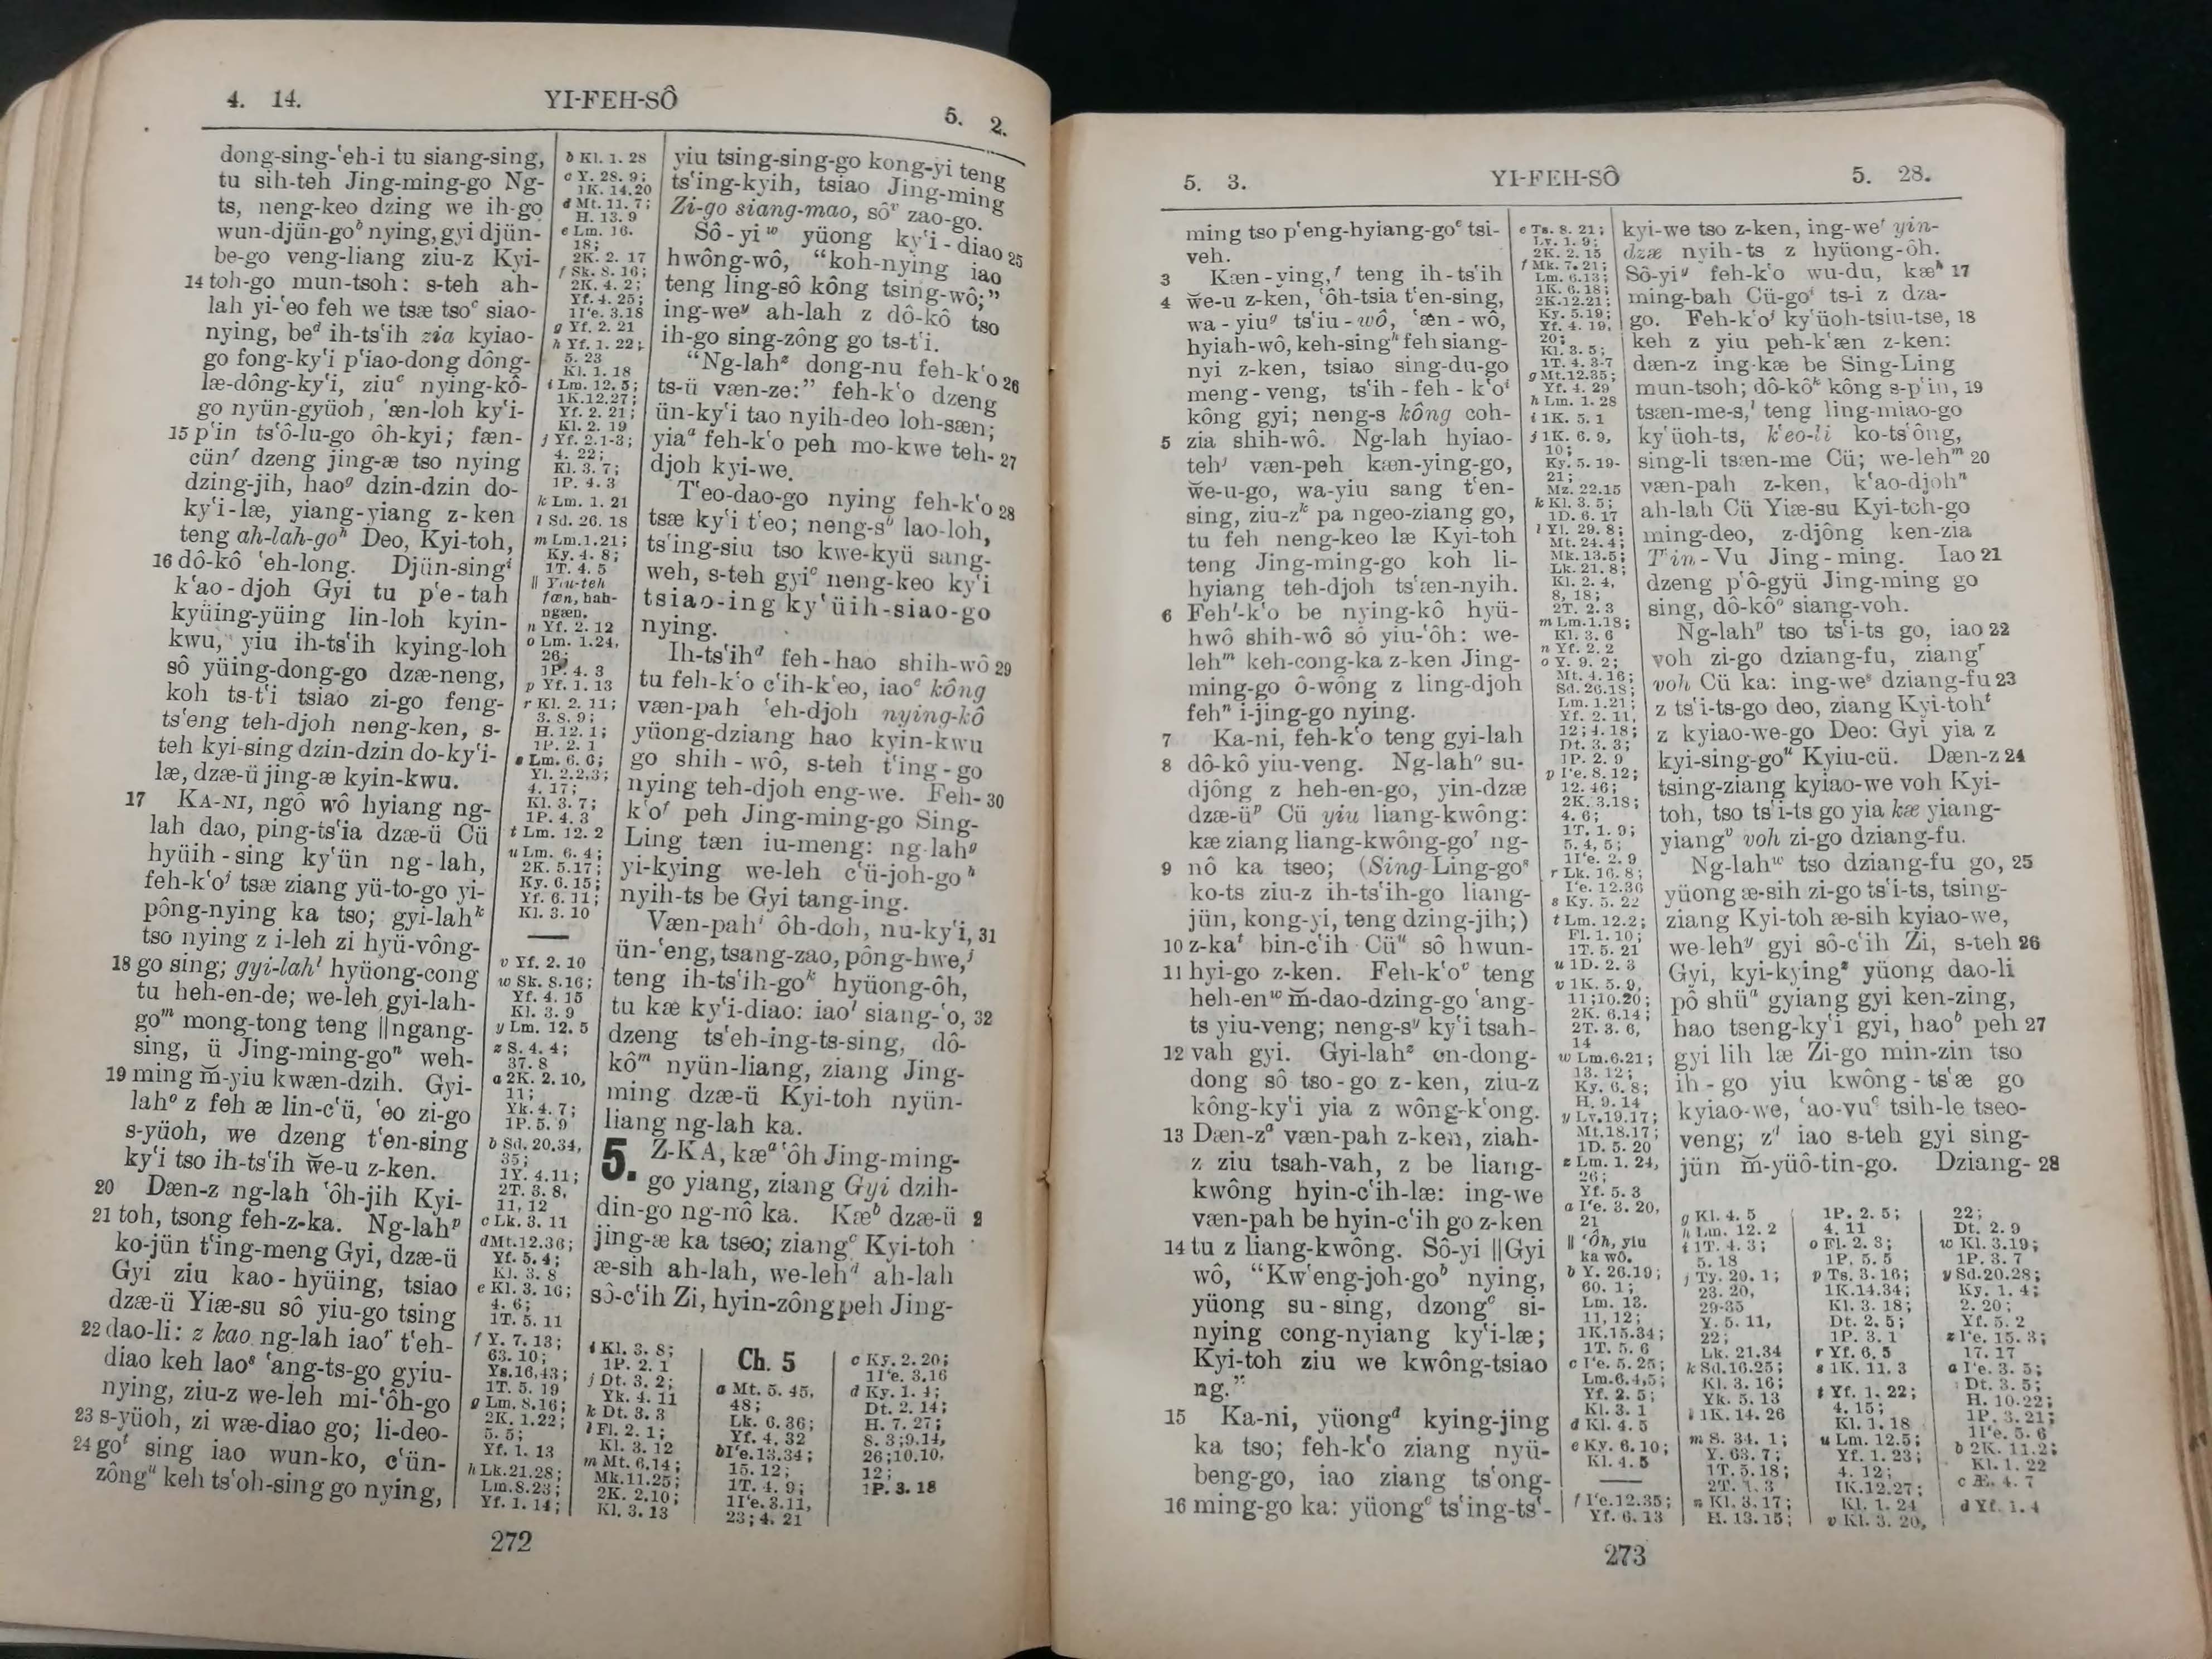 4. 14.
YI-FEH-SÔ
5. 2.
dong-sing-ʻeh-i tu siang-sing,
tu sih-teh Jing-ming-go Ng-
ts, neng-keo dzing we ih-go
wun-djün-goᵇ nying, gyi djün-
be-go veng-liang ziu-z Kyi-
14 toh-go mun-tsoh: s-teh ah-
lah yi-ʻeo feh we tsæ tsoᶜ siao-
nying, beᵈ ih-tsʻih zia kyiao-
go fong-kyʻi pʻiao-dong dông-
læ-dông-kyʻi, ziuᶜ nying-kô-
go nyün-gyüoh, ʻæn-loh kyʻi-
15 pʻin tsʻô-lu-go ôh-kyi; fæn-
cünᶠ dzeng jing-æ tso nying
dzing-jih, haoᵍ dzin-dzin do-
kyʻi-læ, yiang-yiang z-ken
teng ah-lah-goʰ Deo, Kyi-toh,
16 dô-kô ʻeh-long. Djün-singⁱ
kʻao-djoh Gyi tu pʻe-tah
kyüing-yüing lin-loh kyin-
kwu, yiu ih-tsʻih kying-loh
sô yüing-dong-go dzæ-neng,
koh ts-tʻi tsiao zi-go feng-
tsʻeng teh-djoh neng-ken, s-
teh kyi-sing dzin-dzin do-kyʻi-
læ, dzæ-ü jing-æ kyin-kwu.
17 KA-NI, ngô wô hyiang ng-
lah dao, ping-tsʻia dzæ-ü Cü
hyüih-sing kyʻün ng-lah,
feh-kʻoʲ tsæ ziang yü-to-go yi-
pông-nying ka tso; gyi-lahᵏ
tso nying z i-leh zi hyü-vông-
18 go sing; gyi-lahˡ hyüong-cong
tu heh-en-de; we-leh gyi-lah-
goᵐ mong-tong teng ||ngang-
sing, ü Jing-ming-goⁿ weh-
19 ming m̆-yiu kwæn-dzih. Gyi-
lahᵒ z feh æ lin-cʻü, ʻeo zi-go
s-yüoh, we dzeng tʻen-sing
kyʻi tso ih-tsʻih w̆e-u z-ken.
20 Dæn-z ng-lah ʻôh-jih Kyi-
21 toh, tsong feh-z-ka. Ng-lahᵖ
ko-jün tʻing-meng Gyi, dzæ-ü
Gyi ziu kao-hyüing, tsiao
dzæ-ü Yiæ-su sô yiu-go tsing
22 dao-li: z kao ng-lah iaoʳ tʻeh-
diao keh laoˢ ʻang-ts-go gyiu-
nying, ziu-z we-leh mi-ʻôh-go
23 s-yüoh, zi wæ-diao go; li-deo-
24 goᵗ sing iao wun-ko, cʻün-
zôngᵘ keh tsʻoh-sing go nying,
b Kl. 1. 28
c Y. 28. 9;
1K. 14.20
d Mt. 11. 7;
H. 13. 9
e Lm. 16.
18;
2K. 2. 17
f Sk. 8. 16;
2K. 4. 2;
Yf. 4. 25;
1Iʻe. 3.18
g Yf. 2. 21
h Yf. 1. 22;
5. 23
Kl. 1. 18
i Lm. 12. 5;
1K.12.27;
Yf. 2. 21;
Kl. 2. 19
j Yf. 2.1-3;
4. 22;
Kl. 3. 7;
1P. 4. 3
k Lm. 1. 21
l Sd. 26. 18
m Lm.1.21;
Ky. 4. 8;
1T. 4. 5
|| Yiu-teh
fæn, bah-
ngæn.
n Yf. 2. 12
o Lm. 1.24,
26;
1P. 4. 3
p Yf. 1. 13
r Kl. 2. 11;
3. 8. 9;
H. 12. 1;
1P. 2. 1
s Lm. 6. 6;
Yl. 2.2,3;
4. 17;
Kl. 3. 7;
1P. 4. 3
t Lm. 12. 2
u Lm. 6. 4;
2K. 5.17;
Ky. 6. 15;
Yf. 6. 11;
Kl. 3. 10
v Yf. 2. 10
w Sk. 8.16;
Yf. 4. 15
Kl. 3. 9
y Lm. 12. 5
z S. 4. 4;
37. 8
a 2K. 2. 10,
11;
Yk. 4. 7;
1P. 5. 9
b Sd. 20.34,
35;
1Y. 4.11;
2T. 3. 8,
11, 12
c Lk. 3. 11
d Mt.12.36;
Yf. 5. 4;
Kl. 3. 8
e Kl. 3. 16;
4. 6;
1T. 5. 11
f Y. 7. 13;
63. 10;
Ys.16,43;
1T. 5. 19
g Lm. 8.16;
2K. 1.22;
5. 5;
Yf. 1. 13
h Lk.21.28;
Lm.8.23;
Yf. 1. 14;
yiu tsing-sing-go kong-yi teng
tsʻing-kyih, tsiao Jing-ming
Zi-go siang-mao, sôᵛ zao-go.
Sô-yiʷ yüong kyʻi-diao 25
hwông-wô, “koh-nying iao
teng ling-sô kông tsing-wô;”
ing-weʸ ah-lah z dô-kô tso
ih-go sing-zông go ts-tʻi.
“Ng-lahᶻ dong-nu feh-kʻo 26
ts-ü væn-ze:” feh-kʻo dzeng
ün-kyʻi tao nyih-deo loh-sæn;
yiaᵃ feh-kʻo peh mo-kwe teh- 27
djoh kyi-we.
Tʻeo-dao-go nying feh-kʻo 28
tsæ kyʻi tʻeo; neng-sᵇ lao-loh,
tsʻing-siu tso kwe-kyü sang-
weh, s-teh gyiᶜ neng-keo kyʻi
tsiao-ing kyʻüih-siao-go
nying.
Ih-tsʻihᵈ feh-hao shih-wô 29
tu feh-kʻo cʻih-kʻeo, iaoᵉ kông
væn-pah ʻeh-djoh nying-kô
yüong-dziang hao kyin-kwu
go shih-wô, s-teh tʻing-go
nying teh-djoh eng-we. Feh- 30
kʻoᶠ peh Jing-ming-go Sing-
Ling tæn iu-meng: ng-lahᵍ
yi-kying we-leh cʻü-joh-goʰ
nyih-ts be Gyi tang-ing.
Væn-pahⁱ ôh-doh, nu-kyʻi, 31
ün-ʻeng, tsang-zao, pông-hwe,ʲ
teng ih-tsʻih-goᵏ hyüong-ôh,
tu kæ kyʻi-diao: iaoˡ siang-ʻo, 32
dzeng tsʻeh-ing-ts-sing, dô-
kôᵐ nyün-liang, ziang Jing-
ming dzæ-ü Kyi-toh nyün-
liang ng-lah ka.
5. Z-KA, kæᵃ ʻôh Jing-ming-
go yiang, ziang Gyi dzih-
din-go ng-nô ka. Kæᵇ dzæ-ü 2
jing-æ ka tseo; ziangᶜ Kyi-toh
æ-sih ah-lah, we-lehᵈ ah-lah
sô-cʻih Zi, hyin-zông peh Jing-
i Kl. 3. 8;
1P. 2. 1
j Dt. 3. 2;
Yk. 4. 11
k Dt. 3. 3
l Fl. 2. 1;
Kl. 3. 12
m Mt. 6.14;
Mk.11.25;
2K. 2.10;
Kl. 3. 13
Ch. 5
a Mt. 5. 45,
48;
Lk. 6. 36;
Yf. 4. 32
b Iʻe.13.34;
15. 12;
1T. 4. 9;
1Iʻe.3.11,
23; 4. 21
c Ky. 2.20;
1Iʻe. 3.16
d Ky. 1. 4;
Dt. 2. 14;
H. 7. 27;
8. 3; 9.14,
26;10.10,
12;
1P. 3. 18
272
5. 3.
YI-FEH-SÔ
5. 28.
ming tso pʻeng-hyiang-goᵉ tsi-
veh.
3 Kæn-ying,ᶠ teng ih-tsʻih
4 w̆e-u z-ken, ʻôh-tsia tʻen-sing,
wa-yiuᵍ tsʻiu-wô, ʻæn-wô,
hyiah-wô, keh-singʰ feh siang-
nyi z-ken, tsiao sing-du-go
meng-veng, tsʻih-feh-kʻoⁱ
kông gyi; neng-s kông coh-
5 zia shih-wô. Ng-lah hyiao-
tehʲ væn-peh kæn-ying-go,
w̆e-u-go, wa-yiu sang tʻen-
sing, ziu-zᵏ pa ngeo-ziang go,
tu feh neng-keo læ Kyi-toh
teng Jing-ming-go koh li-
hyiang teh-djoh tsʻæn-nyih.
6 Fehˡ-kʻo be nying-kô hyü-
hwô shih-wô sô yiu-ʻôh: we-
lehᵐ keh-cong-ka z-ken Jing-
ming-go ô-wông z ling-djoh
fehⁿ i-jing-go nying.
7 Ka-ni, feh-kʻo teng gyi-lah
8 dô-kô yiu-veng. Ng-lahᵒ su-
djông z heh-en-go, yin-dzæ
dzæ-üᵖ Cü yiu liang-kwông:
kæ ziang liang-kwông-goʳ ng-
9 nô ka tseo; (Sing-Ling-goˢ
ko-ts ziu-z ih-tsʻih-go liang-
jün, kong-yi, teng dzing-jih;)
10 z-kaᵗ bin-cʻih Cüᵘ sô hwun-
11 hyi-go z-ken. Feh-kʻoᵛ teng
heh-enʷ m̆-dao-dzing-go ʻang-
ts yiu-veng; neng-sʸ kyʻi tsah-
12 vah gyi. Gyi-lahᶻ en-dong-
dong sô tso-go z-ken, ziu-z
kông-kyʻi yia z wông-kʻong.
13 Dæn-zᵃ væn-pah z-ken, ziah-
z ziu tsah-vah, z be liang-
kwông hyin-cʻih-læ: ing-we
væn-pah be hyin-cʻih go z-ken
14 tu z liang-kwông. Sô-yi ||Gyi
wô, “Kwʻeng-joh-goᵇ nying,
yüong su-sing, dzongᶜ si-
nying cong-nyiang kyʻi-læ;
Kyi-toh ziu we kwông-tsiao
ng.”
15 Ka-ni, yüongᵈ kying-jing
ka tso; feh-kʻo ziang nyü-
beng-go, iao ziang tsʻong-
16 ming-go ka: yüongᵉ tsʻing-tsʻ-
e Ts. 8. 21;
Lv. 1. 9;
2K. 2. 15
f Mk. 7. 21;
Lm. 6.13;
1K. 6. 18;
2K.12.21;
Ky. 5.19;
Yf. 4. 19,
20;
Kl. 3. 5;
1T. 4. 3-7
g Mt.12.35;
Yf. 4. 29
h Lm. 1. 28
i 1K. 5. 1
j 1K. 6. 9,
10;
Ky. 5. 19-
21;
Mz. 22.15
k Kl. 3. 5;
1D. 6. 17
l Yl. 29. 8;
Mt. 24.4;
Mk. 13.5;
Lk. 21.8;
Kl. 2. 4,
8, 18;
2T. 2. 3
m Lm.1.18;
Kl. 3. 6
n Yf. 2. 2
o Y. 9. 2;
Mt. 4. 16;
Sd. 26.18;
Lm. 1.21;
Yf. 2. 11,
12; 4. 18;
Dt. 3. 3;
1P. 2. 9
p Iʻe. 8. 12;
12. 46;
2K. 3.18;
4. 6;
1T. 1. 9;
5. 4, 5;
1Iʻe. 2. 9
r Lk. 16. 8;
Iʻe. 12.36
s Ky. 5. 22
t Lm. 12.2;
Fl. 1. 10;
1T. 5. 21
u 1D. 2. 3
v 1K. 5. 9,
11;10.20;
2K. 6.14;
2T. 3. 6,
14
w Lm.6.21;
13. 12;
Ky. 6. 8;
H. 9. 14
y Lv.19.17;
Mt.18.17;
1D. 5. 20
z Lm. 1. 24,
26;
Yf. 5. 3
a Iʻe. 3. 20,
21
|| ʻÔh, yiu
ka wô.
b Y. 26.19;
60. 1;
Lm. 13.
11, 12;
1K.15.34;
1T. 5. 6
c Iʻe. 5. 25;
Lm.6.4,5;
Yf. 2. 5;
Kl. 3. 1
d Kl. 4. 5
e Ky. 6. 10;
Kl. 4. 5
f Iʻe.12.35;
Yf. 6. 13
kyi-we tso z-ken, ing-weᶠ yin-
dzæ nyih-ts z hyüong-ôh.
Sô-yiᵍ feh-kʻo wu-du, kæʰ 17
ming-bah Cü-goⁱ ts-i z dza-
go. Feh-kʻoʲ kyʻüoh-tsiu-tse, 18
keh z yiu peh-kʻæn z-ken:
dæn-z ing-kæ be Sing-Ling
mun-tsoh; dô-kôᵏ kông s-pʻin, 19
tsæn-me-s,ˡ teng ling-miao-go
kyʻüoh-ts, kʻeo-li ko-tsʻông,
sing-li tsæn-me Cü; we-lehᵐ 20
væn-pah z-ken, kʻao-djohⁿ
ah-lah Cü Yiæ-su Kyi-toh-go
ming-deo, z-djông ken-zia
Tʻin-Vu Jing-ming. Iao 21
dzeng pʻô-gyü Jing-ming go
sing, dô-kôᵒ siang-voh.
Ng-lahᵖ tso tsʻi-ts go, iao 22
voh zi-go dziang-fu, ziangʳ
voh Cü ka: ing-weˢ dziang-fu 23
z tsʻi-ts-go deo, ziang Kyi-tohᵗ
z kyiao-we-go Deo: Gyi yia z
kyi-sing-goᵘ Kyiu-cü. Dæn-z 24
tsing-ziang kyiao-we voh Kyi-
toh, tso tsʻi-ts go yia kæ yiang-
yiangᵛ voh zi-go dziang-fu.
Ng-lahʷ tso dziang-fu go, 25
yüong æ-sih zi-go tsʻi-ts, tsing-
ziang Kyi-toh æ-sih kyiao-we,
we-lehʸ gyi sô-cʻih Zi, s-teh 26
Gyi, kyi-kyingᶻ yüong dao-li
pô shüᵃ gyiang gyi ken-zing,
hao tseng-kyʻi gyi, haoᵇ peh 27
gyi lih læ Zi-go min-zin tso
ih-go yiu kwông-tsʻæ go
kyiao-we, ʻao-vuᶜ tsih-le tseo-
veng; zᵈ iao s-teh gyi sing-
jün m̆-yüô-tin-go. Dziang- 28
g Kl. 4. 5
h Lm. 12. 2
i 1T. 4. 3;
5. 18
j Ty. 20. 1;
23. 20,
29-35
Y. 5. 11,
22;
Lk. 21.34
k Sd.16.25;
Kl. 3. 16;
Yk. 5. 13
l 1K. 14. 26
m S. 34. 1;
Y. 63. 7;
1T. 5. 18;
2T. 1. 3
n Kl. 3. 17;
H. 13. 15;
1P. 2. 5;
4. 11
o Fl. 2. 3;
1P. 5. 5
p Ts. 3. 16;
1K.14.34;
Kl. 3. 18;
Dt. 2. 5;
1P. 3. 1
r Yf. 6. 5
s 1K. 11. 3
t Yf. 1. 22;
4. 15;
Kl. 1. 18
u Lm. 12.5;
Yf. 1. 23;
4. 12;
1K.12.27;
Kl. 1. 24
v Kl. 3. 20,
22;
Dt. 2. 9
w Kl. 3.19;
1P. 3. 7
y Sd.20.28;
Ky. 1. 4;
2. 20;
Yf. 5. 2
z Iʻe. 15. 3;
17. 17
a Iʻe. 3. 5;
Dt. 3. 5;
H. 10.22;
1P. 3.21;
1Iʻe. 5. 6
b 2K. 11.2;
Kl. 1. 22
c Æ. 4. 7
d Yf. 1. 4
273